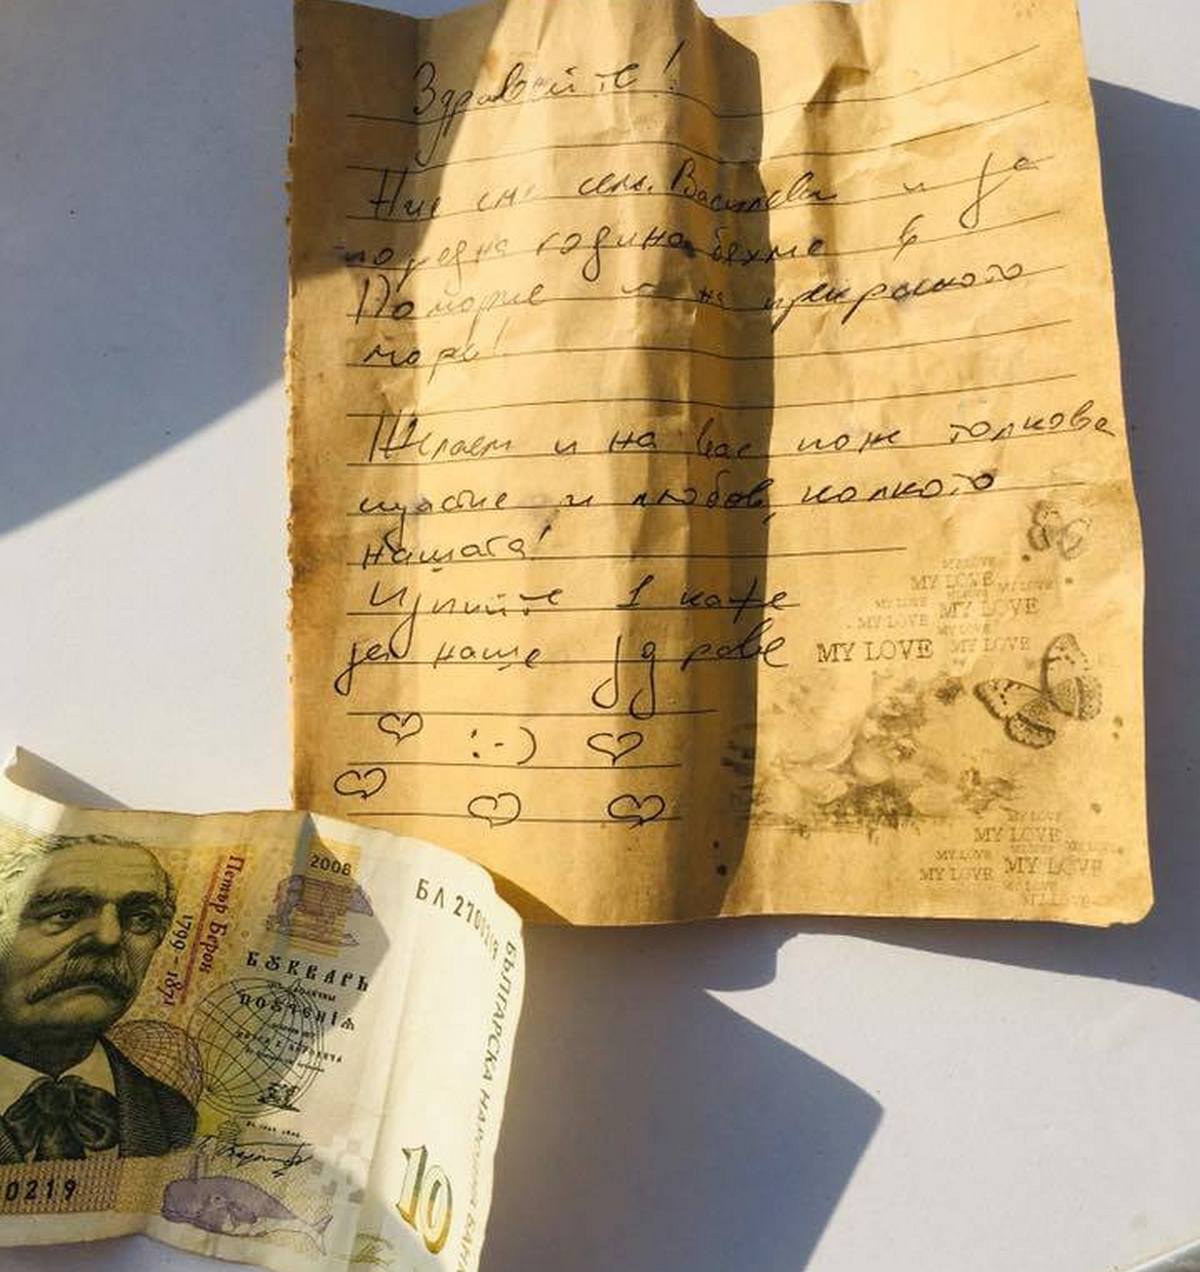 Здравейте!
Ние сме сем. Василеви и за
поредна година бяхме в
Поморие и на прекрасното
море!
Желаем и на вас поне толкова
щастие и любов, колкото
нашата!
Изпийте 1 кафе
за наше здраве
:-)
MY LOVE
MY LOVE
MY LOVE
MY LOVE
MY LOVE
MY LOVE
MY LOVE
MY LOVE
MY LOVE
MY LOVE
MY LOVE
MY LOVE
MY LOVE
MY LOVE
2008
Петър Берон
1799 - 1871
БУКВАРЬ
БЛ
БЪЛГАРСКА НАРОДНА БАНКА
0219
10